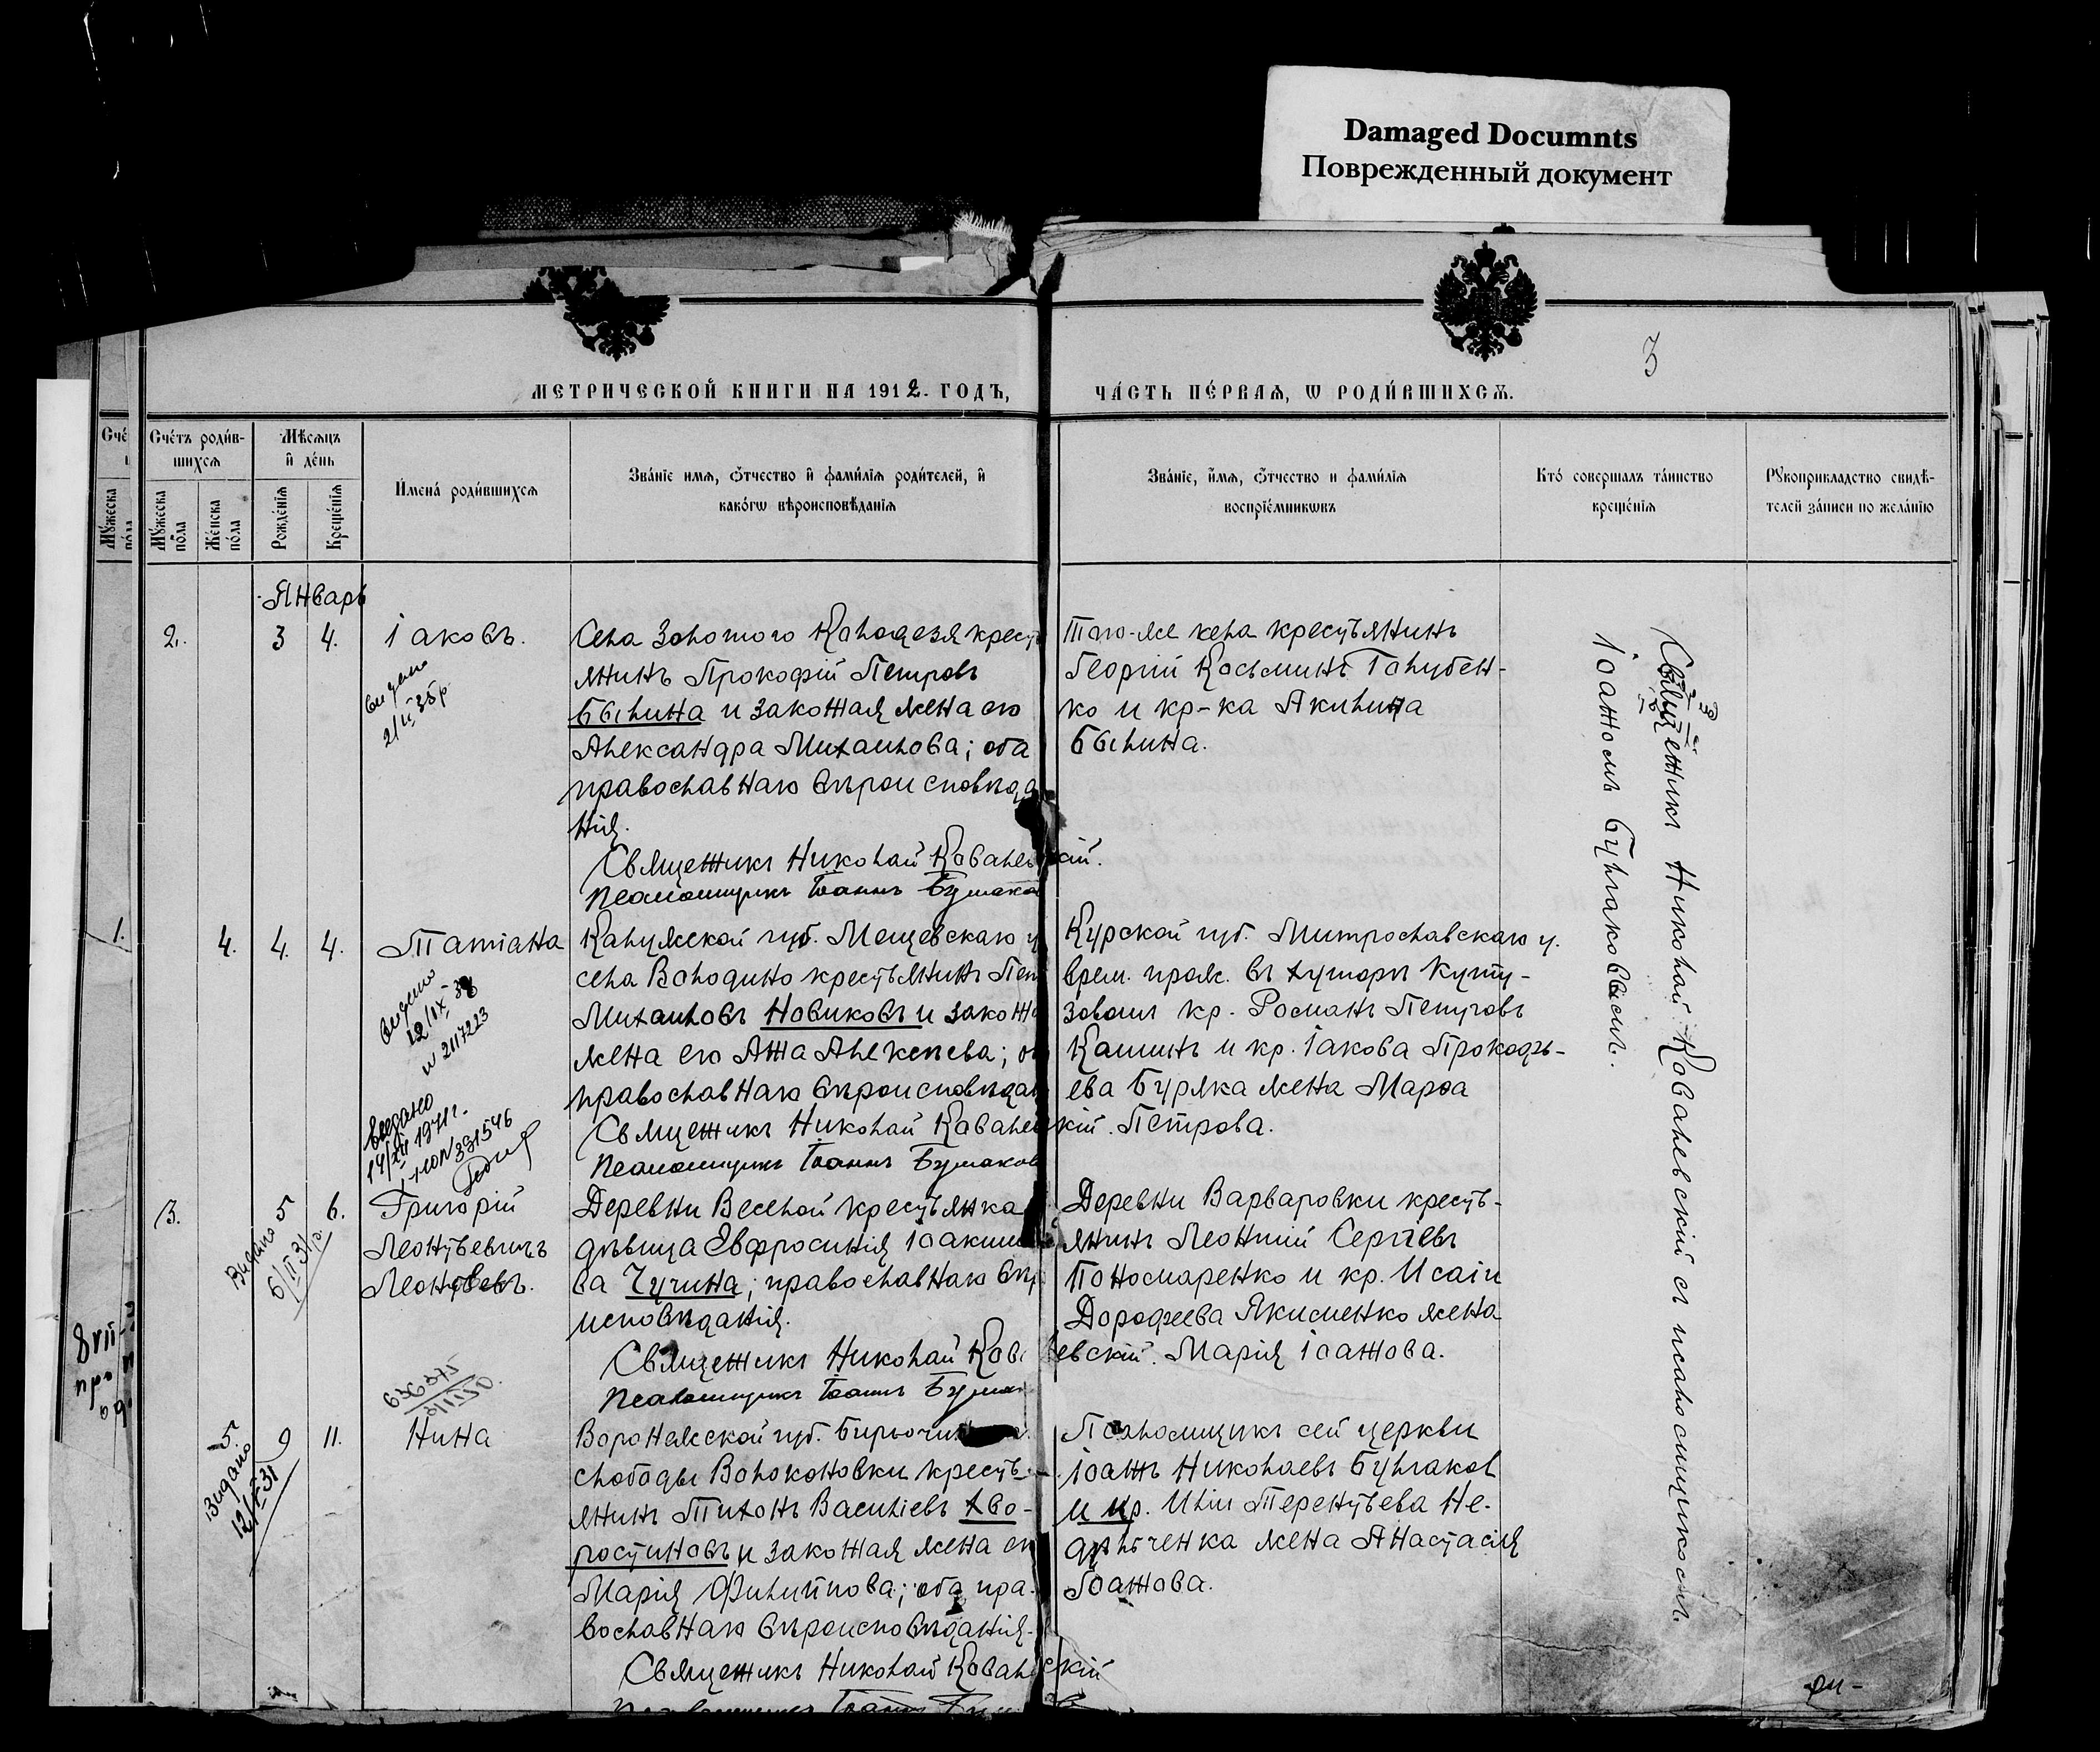 Damaged Documnts
Поврежденный документ
3
МЕТРИЧЕСКОЙ КНИГИ НА 1912. ГОДЪ,
ЧАСТЬ ПЕРВАЯ, Ѡ РОДИВШИХСЯ.
Счетъ родив-
шихся
Мужеска
пола
Женска
пола
Мѣсяцъ
и день
Рожденія
Крещенія
Имена родившихся
Званіе имя, ѿчество и фамилія родителей, и
какогѡ вѣроисповѣданія
Званіе, имя, ѿчество и фамилія
воспріемникѡвъ
Кто совершалъ таинство
крещенія
Рукоприкладство свидѣ-
телей записи по желанію
Январь
2. 3 4. Іаковъ.
Села Золотого Колодезя крест
янинъ Прокофій Петровъ
Былина и законная жена его
Александра Михаилова; оба
православнаго вѣроисповѣда
нія.
Священникъ Николай Ковалевскій.
Псаломщикъ Іоаннъ Булгаков
Того-же села крестьянинъ
Георгій Косьминъ Голубен-
ко и кр-ка Акилина
Былина.
Священникъ Николай Ковалевскій съ псаломщикомъ
Іоанномъ Булгаковымъ.
1.
4. 4. 4. Татіана
видано
12/IX-38
N 2117223
выдано
Калужской губ. Мещевскаго у
села Володино крестьянинъ Пет
Михаиловъ Новиковъ и законн
жена его Анна Алексеева; об
православнаго вѣроисповѣдан
Священникъ Николай Ковалевскій.
Псаломщикъ Іоаннъ Булгаков
Курской губ. Митрославскаго у.
врем. прож. въ хуторѣ Куту-
зовом кр. Романъ Петровъ
Кашинъ и кр. Іакова Прокофь-
ева Буряка жена Марѳа
Петрова.
3. 5 6. Григорій
Леонтьевичъ
Леонтьевъ.
Видано
6/II 31 р.
Деревни Веселой крестьянка
дѣвица Евфросинія Іоаким
ва Чугина; православнаго вѣр
исповѣданія.
Священникъ Николай Ковалевскій.
Псаломщикъ Іоаннъ Булгак
Деревни Варваровки кресть-
янинъ Леонтій Сергіевъ
Пономаренко и кр. Исаіи
Дорофеева Якименко жена
Марія Іоаннова.
5. 9 11. Нина
Видано
Воронежской губ. Бирючин
слободы Волоконовки кресть-
янинъ Тихонъ Василіевъ Хво-
ростиновъ и законная жена ег
Марія Филиппова; оба пра-
вославнаго вѣроисповѣданія.
Священникъ Николай Ковалевскій
Псаломщикъ Іоаннъ
Псаломщикъ сей церкви
Іоаннъ Николаевъ Булгаков
и кр. Иліи Терентьева Не-
дѣльченка жена Анастасія
Іоаннова.